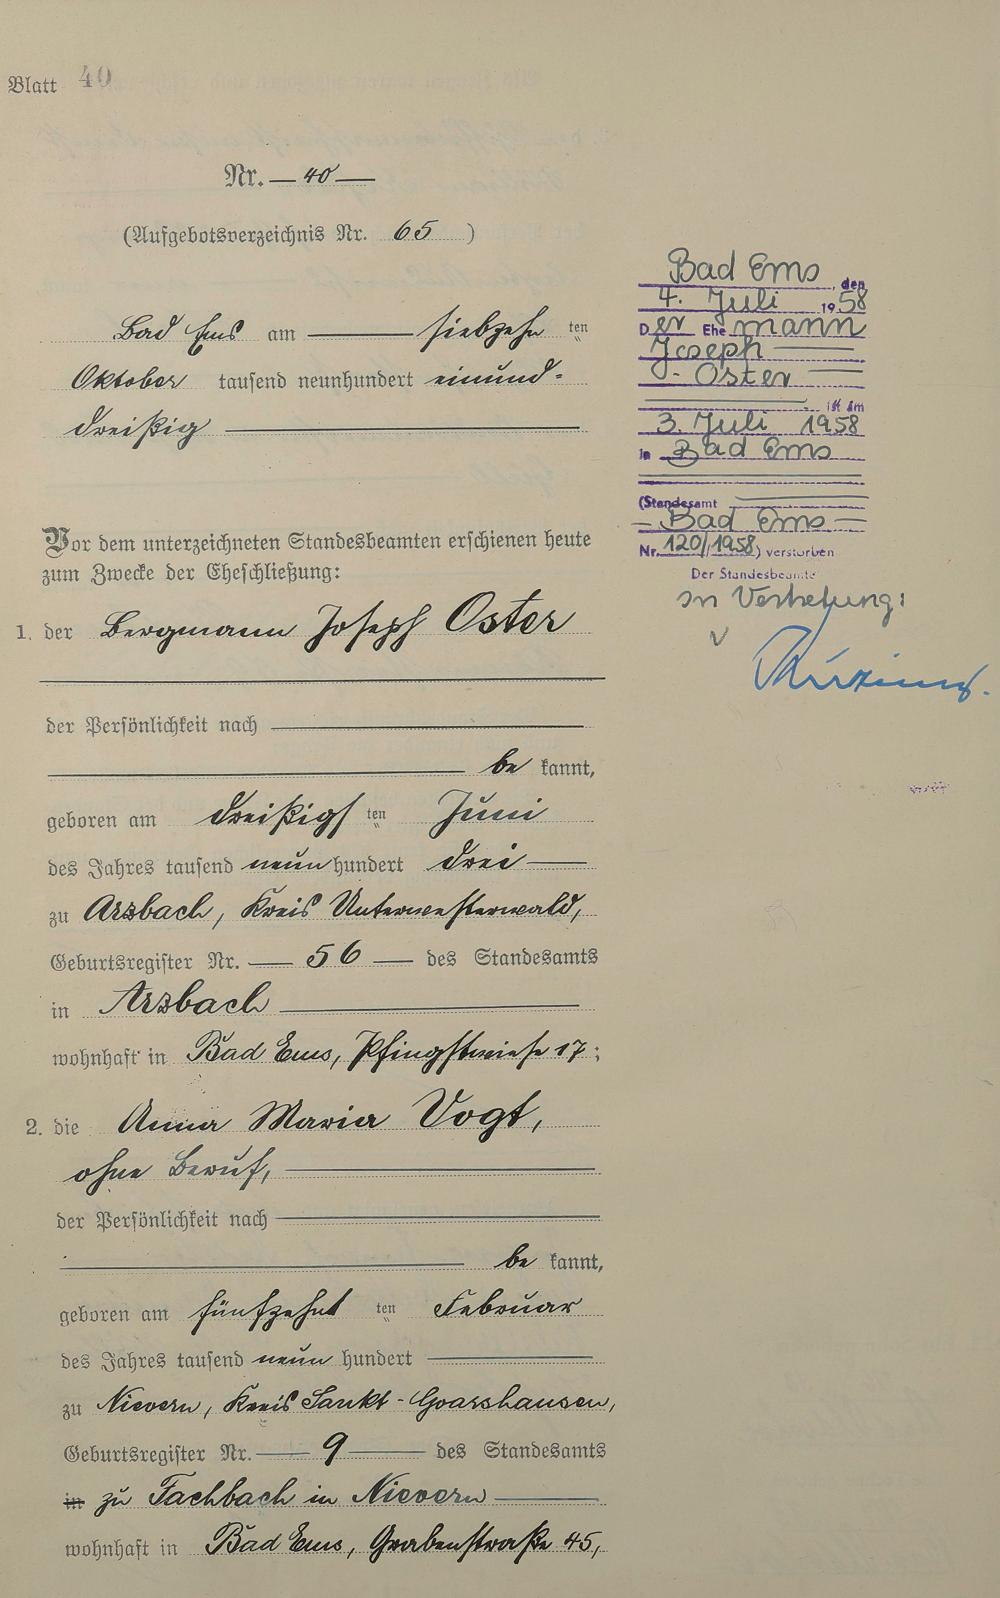 Blatt 40
Nr. — 40 —
(Aufgebotsverzeichnis Nr. 65 )
Bad Ems am siebzehn ten
Oktober tausend neunhundert einund-
dreißig
Vor dem unterzeichneten Standesbeamten erschienen heute
zum Zwecke der Eheschließung:
1. der Bergmann Joseph Oster
der Persönlichkeit nach
be kannt,
geboren am dreißigs ten Juni
des Jahres tausend neun hundert drei
zu Arzbach, Kreis Unterwesterwald,
Geburtsregister Nr. — 56 — des Standesamts
in Arzbach
wohnhaft in Bad Ems, Pfingstwiese 17;
2. die Anna Maria Vogt,
ohne Beruf,
der Persönlichkeit nach
be kannt,
geboren am fünfzehnt ten Februar
des Jahres tausend neun hundert
zu Nievern, Kreis Sankt-Goarshausen,
Geburtsregister Nr. — 9 — des Standesamts
in zu Fachbach in Nievern
wohnhaft in Bad Ems, Grabenstraße 45,
Bad Ems, den
4. Juli 1958
Der Ehemann
Joseph
- Oster
ist am
3. Juli 1958
in Bad Ems
(Standesamt
— Bad Ems —
Nr. 120/1958) verstorben
Der Standesbeamte
In Vertretung: